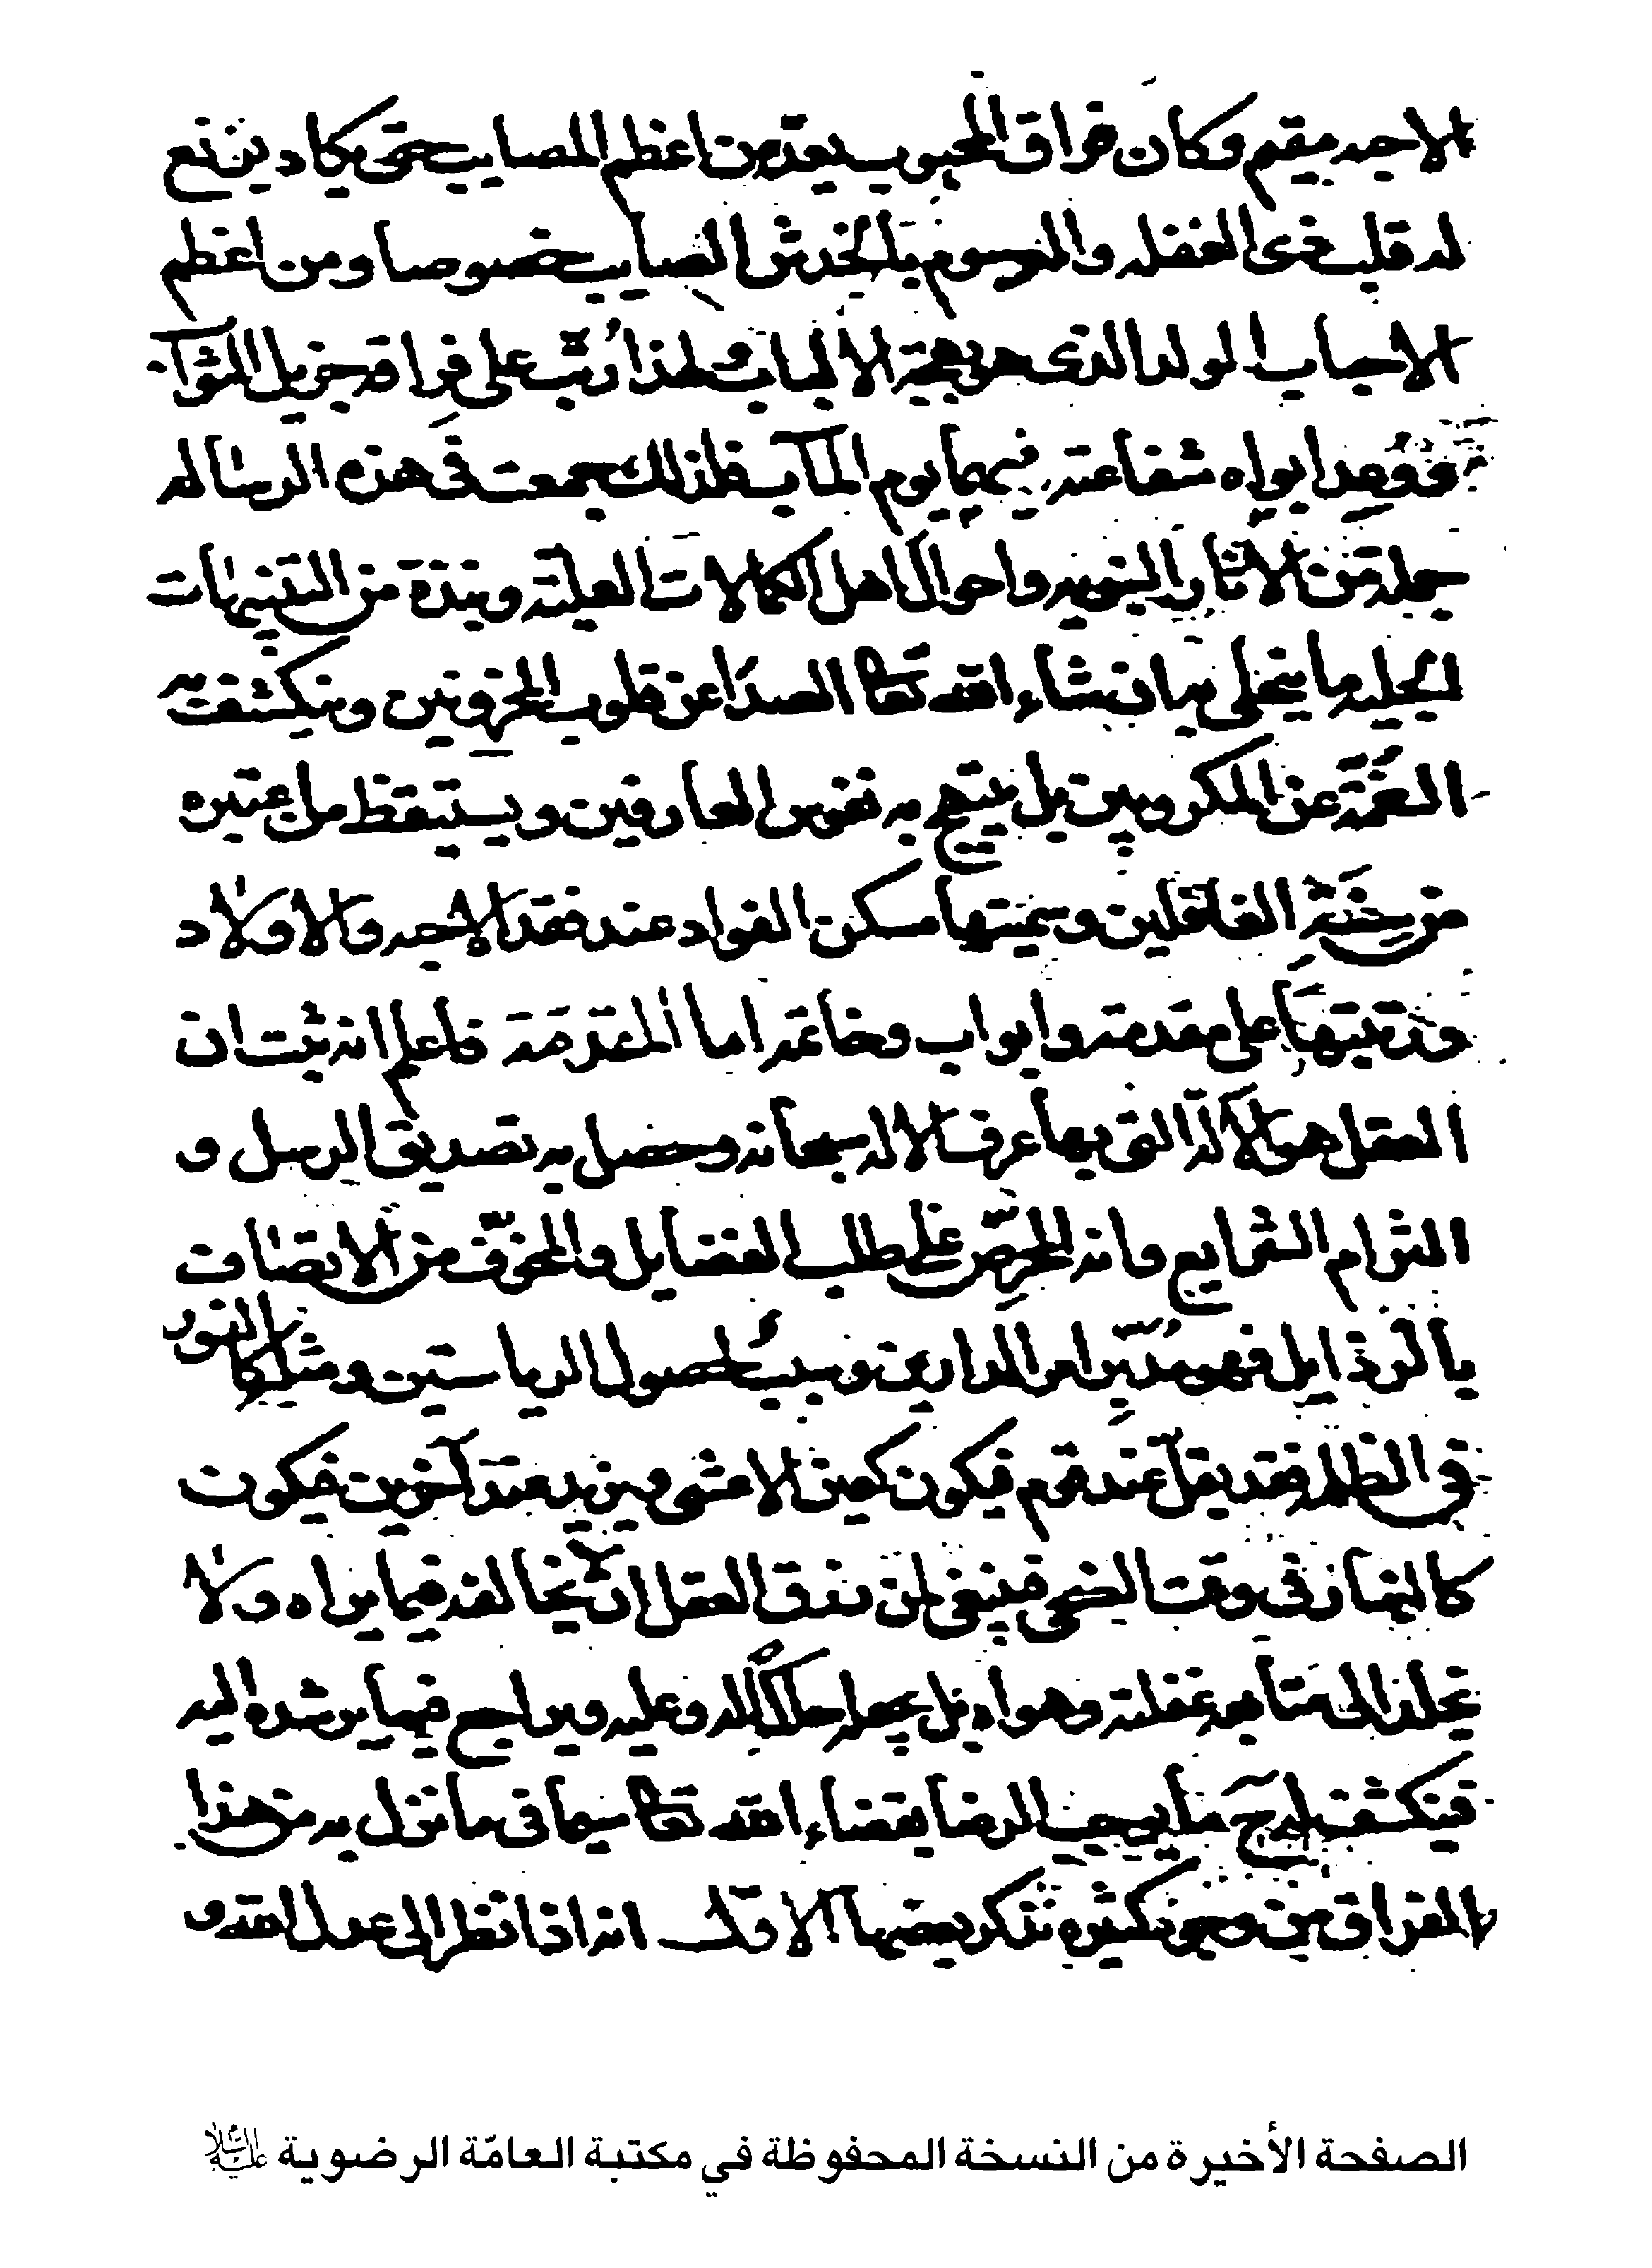 لاحد مقيم وكان فراق المحبوب يعدّ من اعظم المصايب حتى يكاد يزيغ
له قلب ذى العقل والموسوم بالحدس الصايب خصوصا ومن اعظم
الاحباب الولد الذى هو مهجة الالباب ولهذا رُتّب على فراقه جزيل الثواب
ووُعِد ابواه شفاعته فيهما يوم المآب فلذلك جمعت فى هذه الرساله
جملة من الاثار النبويه واحوال اهل الكمالات العليّه ونبذة من التنبيهات
الجليه ما ينجلى به ان شاء الله تعالى الصدا عن قلوب المحزونين وينكشف به
الغمّة عن المكروبين بل يبتهج به نفوس العارفين ويستيقظ من اعتبره
من سِنَةِ الغافلين وسميتها مسكن الفواد عند فقد الاحبه والاولاد
ورتبتها على مقدمة وابواب وخاتمه اما المقدّمة فاعلم انه ثبت ان
العقل هو الآلة التى بها عرف الاله سبحانه وحصل به تصديق الرسل و
التزام الشرايع وانه المحرّض على طلب الفضايل والمخوّف من الاتصاف
بالرذايل فهو مدبّر امر الدارين وسببٌ لحصول الرياستين ومثله كالنور
فى الظلمه فقد يقلّ عند قوم فيكون كعين الاعشى ويزيد عند آخرين فيكون
كالنهار فى وقت الضحى فينبغى لمن رزق العقل ان لا يخالفه فيما يراه ولا
يخلد الى متابعة غفلته وهواه بل يجعله حاكما له وعليه ويراجع فيما يرشده اليه
فينكشف له ح ما يوجب الرضا بقضاء الله تعالى سيما فى ما نزل به من هذا
الفراق من وجوه كثيره نذكر بعضها الاول انه اذا نظر الى عدل الله و
الصفحة الأخيرة من النسخة المحفوظة في مكتبة العامّة الرضوية عليه السلام